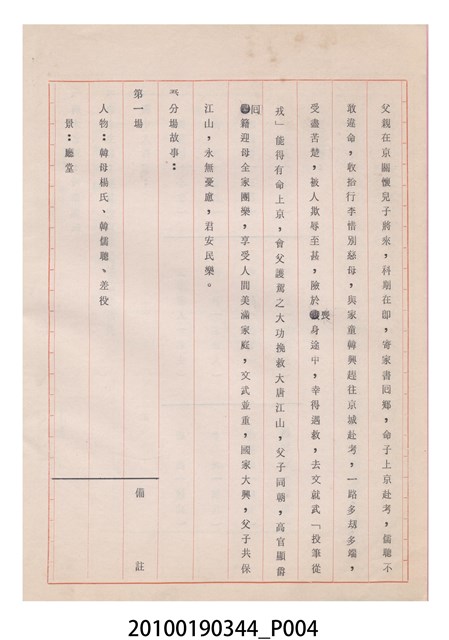 父親在京關懷兒子將來，科期在即，寄家書囘鄉，命子上京赴考，儒聰不
敢違命，收拾行李惜別慈母，與家童韓興趕往京城赴考，一路多刼多端，
受盡苦楚，被人欺辱至甚，險於喪身途中，幸得遇救，去文就武「投筆從
戎」能得有命上京，會父護駕之大功挽救大唐江山，父子同朝，高官顯爵
囘籍迎母全家團樂，享受人間美滿家庭，文武並重，國家大興，父子共保
江山，永無憂慮，君安民樂。
分場故事：
第一場
備註
人物：韓母楊氏、韓儒聰、差役
景：廳堂
20100190344_P004